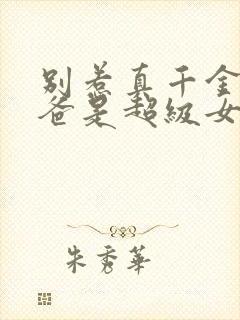 别惹真千金
爸是超级女
朱秀華